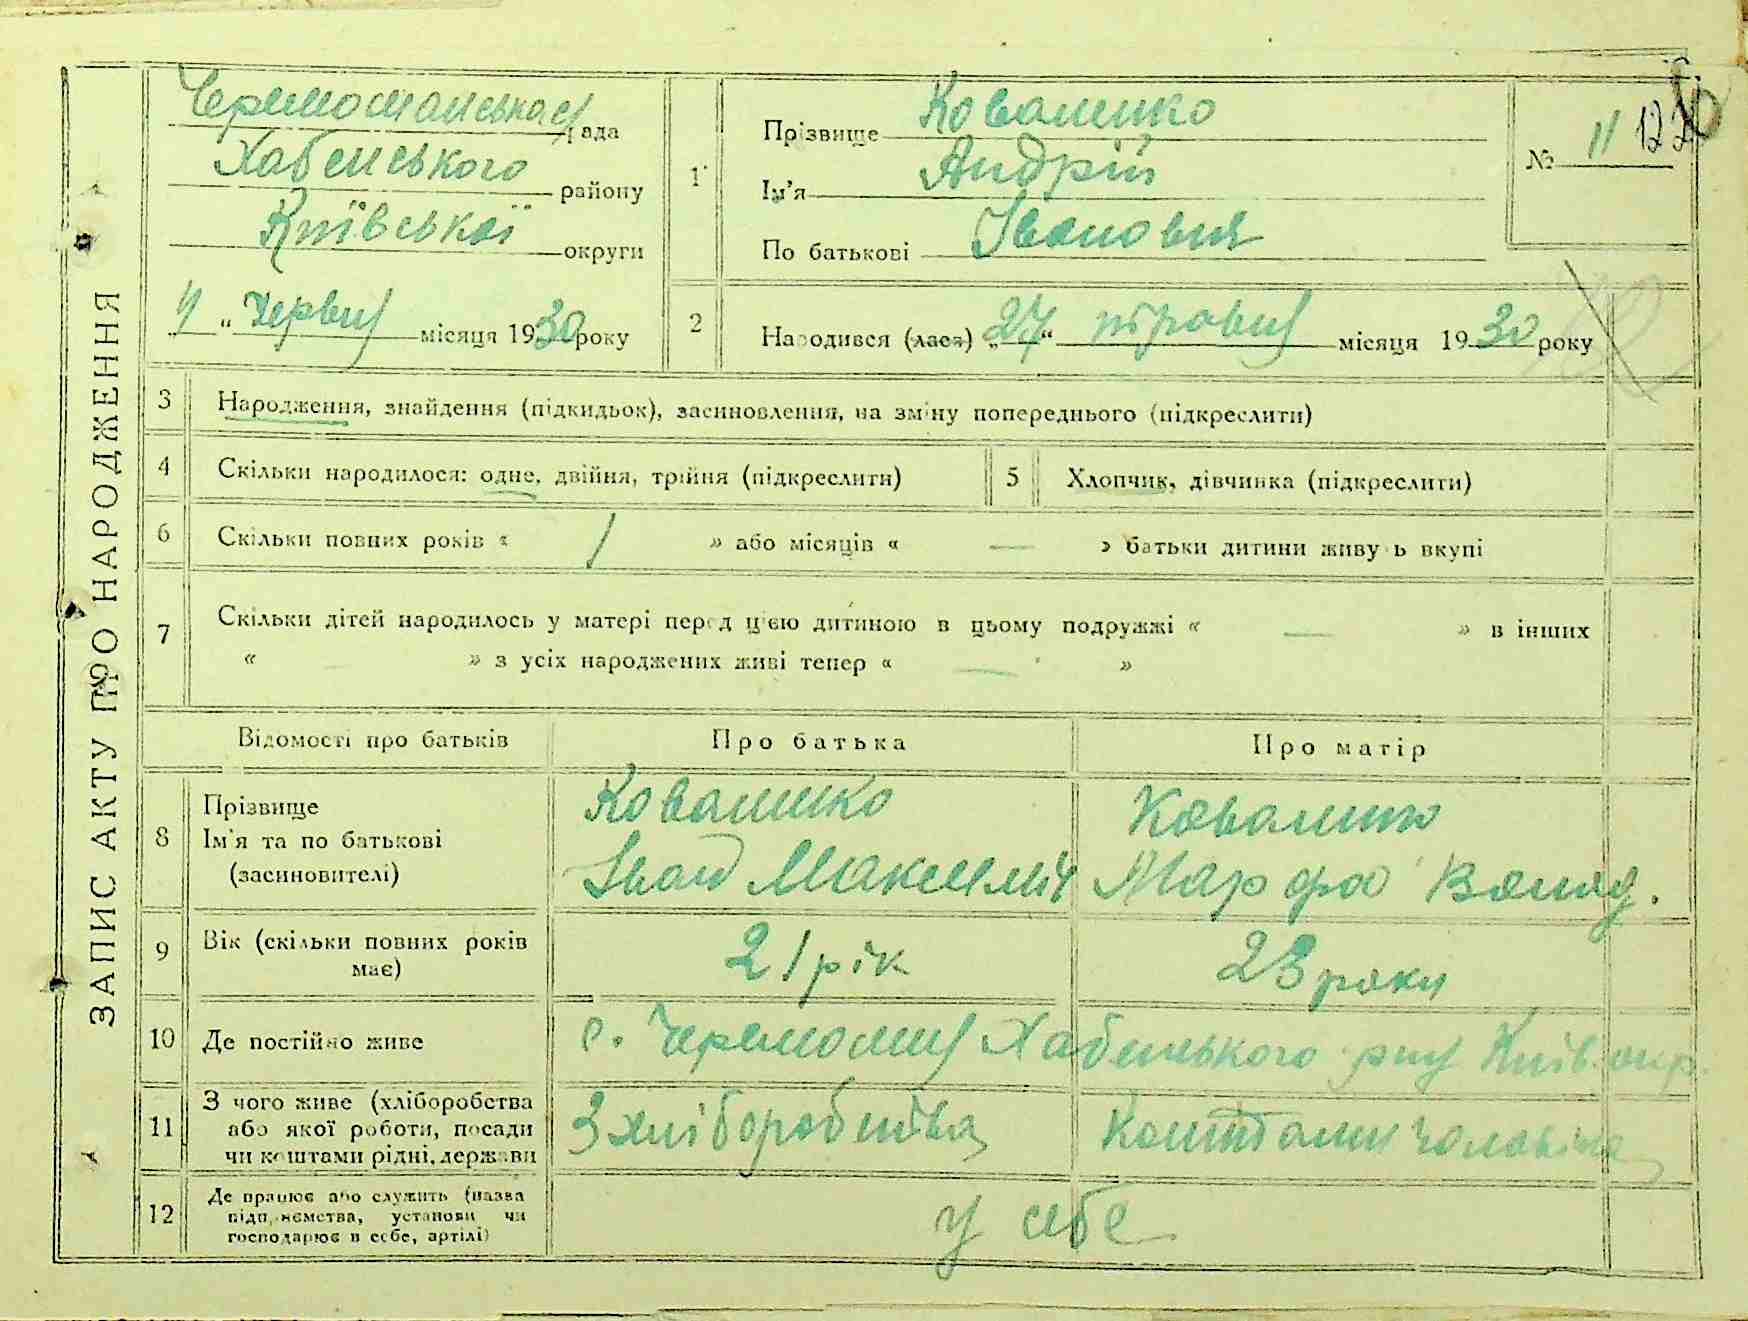 ЗАПИС АКТУ ПРО НАРОДЖЕННЯ
рада
Хабенського району
Київської округи
червня місяця 1930 року
1
Прізвище Коваленко
Ім'я Андрій
По батькові Іванович
№ 11
2
Народився (лася) „27“ травня місяця 1930 року
3 Народження, знайдення (підкидьок), засиновлення, на зміну попереднього (підкреслити)
4 Скільки народилося: одне, двійня, трійня (підкреслити)
5 Хлопчик, дівчинка (підкреслити)
6 Скільки повних років « 1 » або місяців « — » батьки дитини живуть вкупі
7 Скільки дітей народилось у матері перед цією дитиною в цьому подружжі « — » в інших
« » з усіх народжених живі тепер « — »
Відомості про батьків Про батька Про матір
8 Прізвище
Ім'я та по батькові
(засиновителі)
Коваленко
Іван Максимів
Коваленко
Марфа
9 Вік (скільки повних років
має)
21 рік
23 роки
10 Де постійно живе
с. Хабенського р-ну Київ. окр.
11 З чого живе (хліборобства
або якої роботи, посади
чи коштами рідні, держави
З хліборобства
Коштами чоловіка
12 Де працює або служить (назва
підприємства, установи чи
господарює в себе, артілі)
у себе